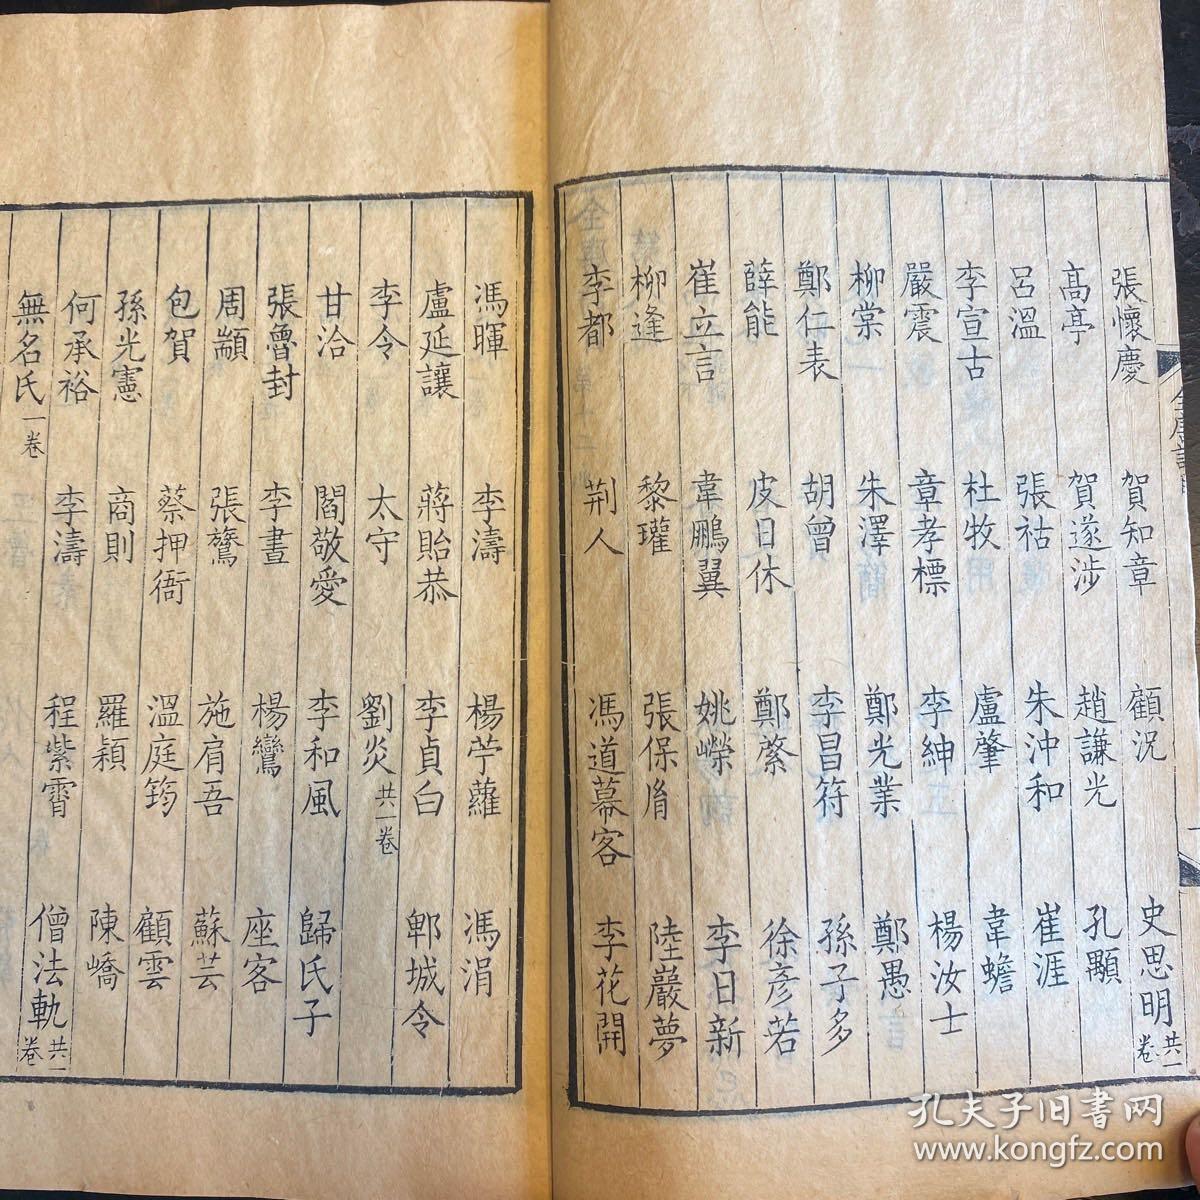 張懷慶 賀知章 顧況 史思明 共一卷
高亭 賀遂涉 趙謙光 孔顒
呂溫 張祜 朱沖和 崔涯
李宣古 杜牧 盧肇 韋蟾
嚴震 章孝標 李紳 楊汝士
柳棠 朱澤 鄭光業 鄭愚
鄭仁表 胡曾 李昌符 孫子多
薛能 皮日休 鄭綮 徐彥若
崔立言 韋鵬翼 姚嶸 李日新
柳逢 黎瓘 張保胤 陸巖夢
李都 荆人 馮道幕客 李花開
馮暉 李濤 楊苧蘿 馮涓
盧延讓 蔣貽恭 李貞白 郫城令
李令 太守 劉炎 共一卷
甘洽 閻敬愛 李和風 歸氏子
張魯封 李晝 楊鸞 座客
周顗 張鷟 施肩吾 蘇芸
包賀 蔡押衙 溫庭筠 顧雲
孫光憲 商則 羅穎 陳嶠
何承裕 李濤 程紫霄 僧法軌 共一卷
無名氏 一卷
孔夫子旧书网
www.kongfz.com